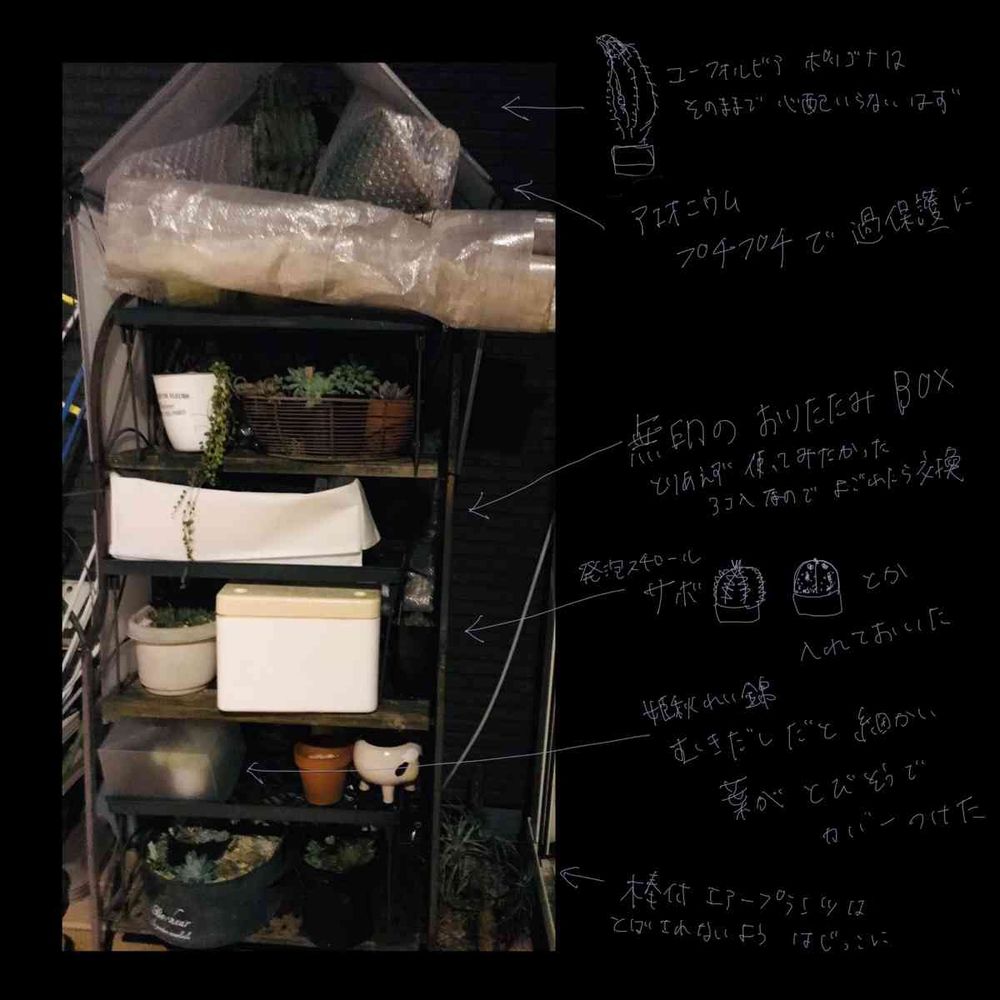 ユーフォルビア ホリゴナは
そのままで 心配いらない はず
アエオニウム
プチプチ で 過保護に
無印の おりたたみ BOX
とりあえず 使ってみたかった
3コ入なので よごれたら交換
発泡スチロール
サボ とか
入れておいた
姫秋れい錦
むきだしだと 細かい
葉が とびそうで
カバーつけた
棒付 エアープランツは
とばされないよう はじっこに